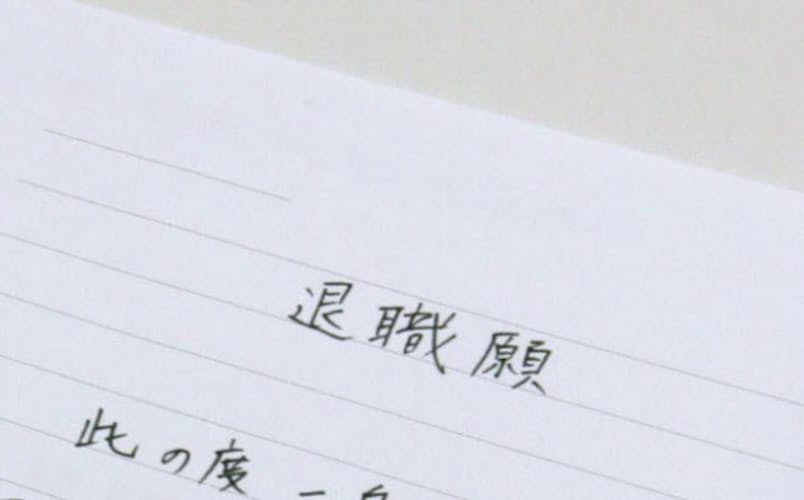 退職願
此の度